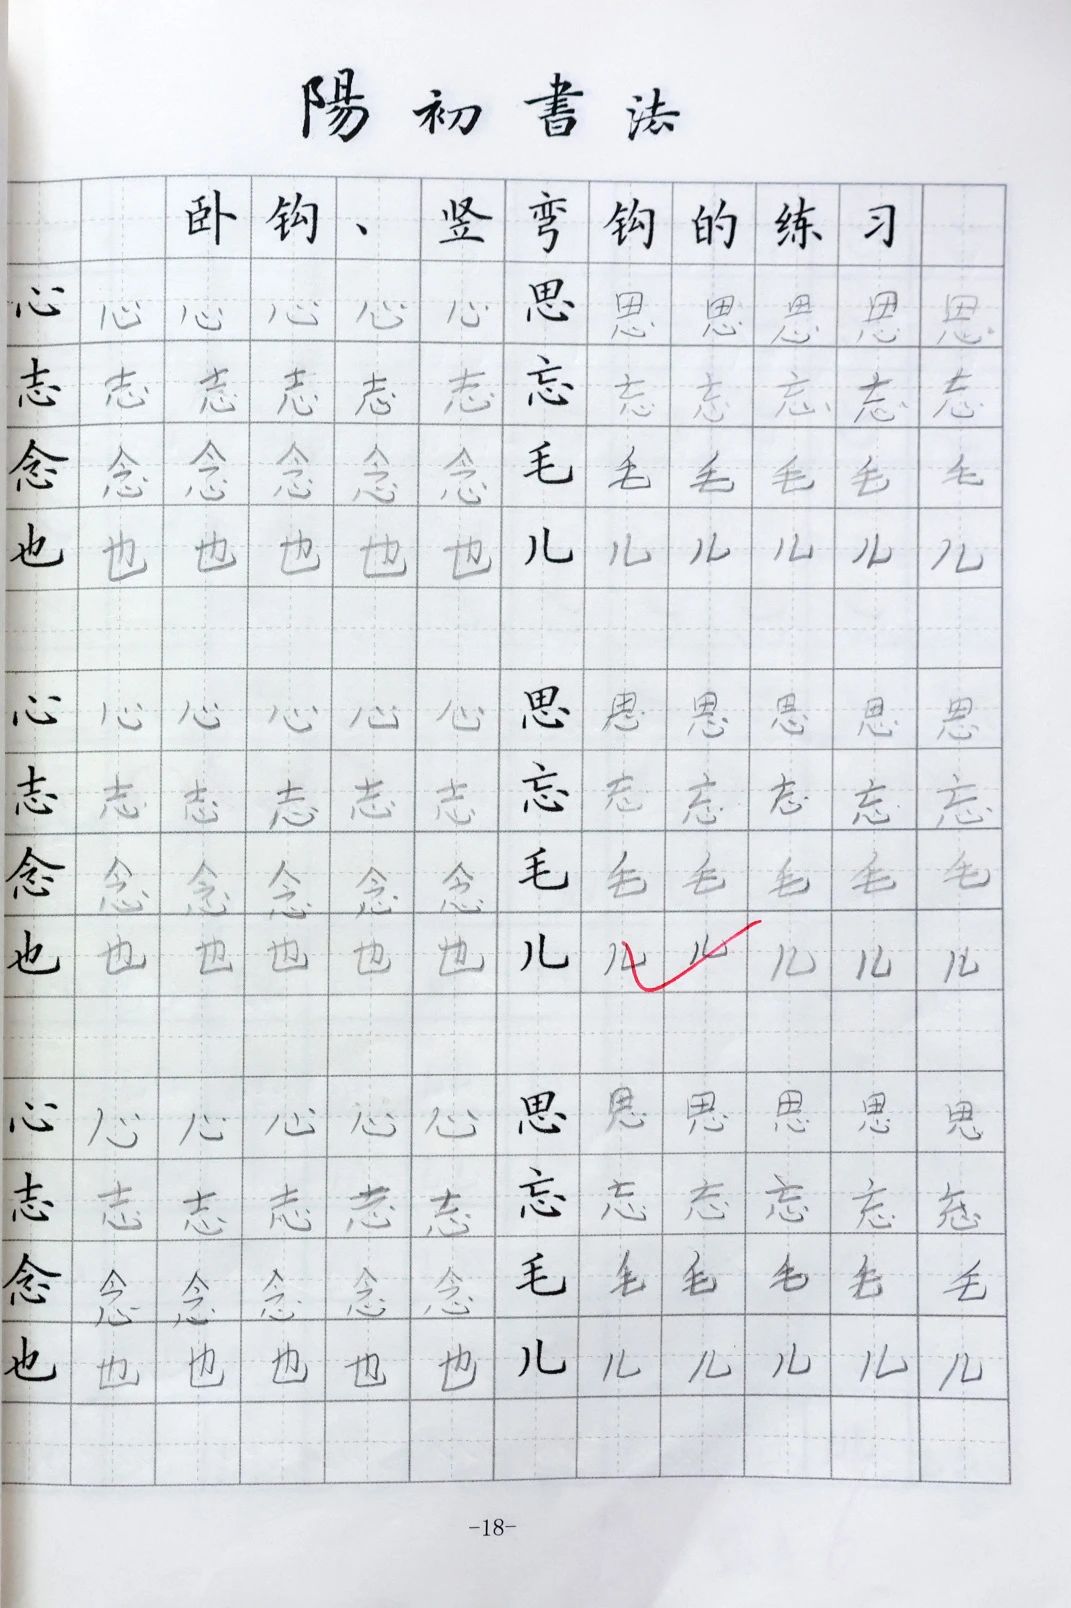 陽初書法
卧钩、竖弯钩的练习
心心心心心心思思思思思思
志志志志志志忘忘忘忘忘忘
念念念念念念毛毛毛毛毛毛
也也也也也也儿儿儿儿儿儿
心心心心心心思思思思思思
志志志志志志忘忘忘忘忘忘
念念念念念念毛毛毛毛毛毛
也也也也也也儿儿儿儿儿儿
心心心心心心思思思思思思
志志志志志志忘忘忘忘忘忘
念念念念念念毛毛毛毛毛毛
也也也也也也儿儿儿儿儿儿
-18-